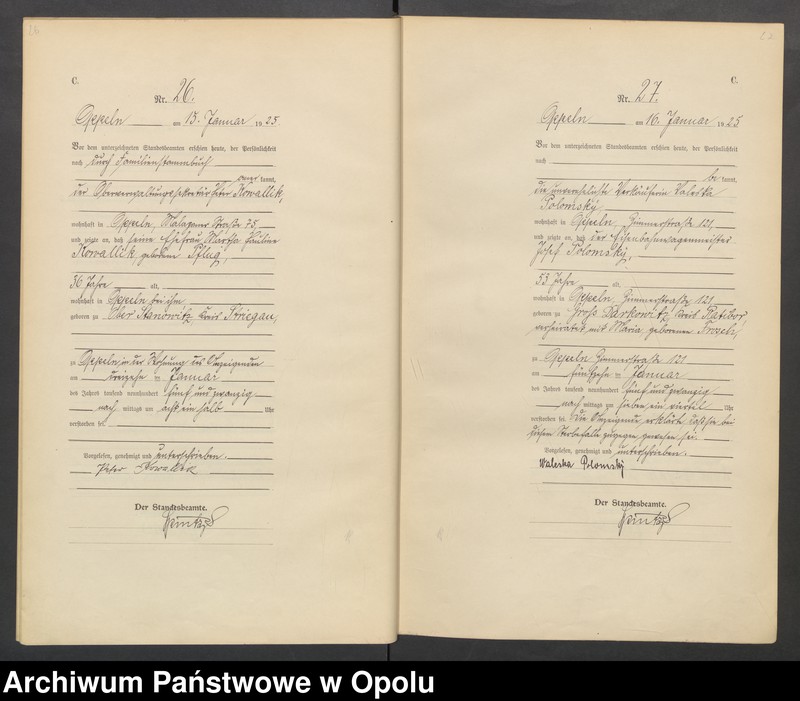 26
C.
Nr. 26.
Oppeln am 15. Januar 1925
Vor dem unterzeichneten Standesbeamten erschien heute, der Persönlichkeit
nach durch Familienstammbuch
kannt,
der Oberverwaltungssekretär Peter Kowallik,
wohnhaft in Oppeln, Malapaner Straße 75,
und zeigte an, daß seine Ehefrau Martha Pauline
Kowallik geborene Pflug,
36 Jahre alt,
wohnhaft in Oppeln bei ihm
geboren zu Ober Stanowitz Kreis Striegau,
zu Oppeln in der Wohnung des Anzeigenden
am dreizehn ten Januar
des Jahres tausend neunhundert fünf und zwanzig
nach mittags um acht ein halb Uhr
verstorben sei.
Vorgelesen, genehmigt und unterschrieben.
Peter Kowallik
Der Standesbeamte.
C.
Nr. 27.
Oppeln am 16. Januar 1925
Vor dem unterzeichneten Standesbeamten erschien heute, der Persönlichkeit
nach
be kannt,
die unverehelichte Verkäuferin Valeska
Polomský
wohnhaft in Oppeln, Zimmerstraße 121,
und zeigte an, daß der Eisenbahnwagenmeister
Josef Polomský,
53 Jahre alt,
wohnhaft in Oppeln, Zimmerstraße 121
geboren zu Groß Darkowitz, Kreis Ratibor
verheiratet mit Maria geborenen
zu Oppeln Zimmerstraße 121
am fünfzehn ten Januar
des Jahres tausend neunhundert fünf und zwanzig
nach mittags um sieben ein viertel Uhr
verstorben sei. Die Anzeigende erklärte daß sie bei
diesem Sterbefalle zugegen gewesen sei.
Vorgelesen, genehmigt und unterschrieben.
Waleska Polomský
Der Standesbeamte.
Archiwum Państwowe w Opolu